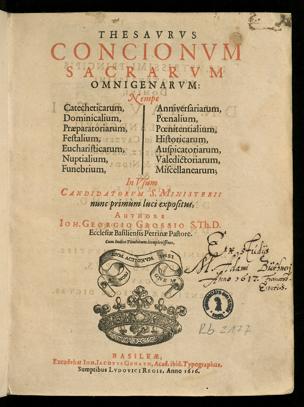 THESAVRVS
CONCIONVM
SACRARVM
OMNIGENARVM:
Nempe
Catecheticarum,
Dominicalium,
Præparatoriarum,
Festalium,
Eucharisticarum,
Nuptialium,
Funebrium,
Anniversariarum,
Pœnalium,
Pœnitentialium,
Historicarum,
Auspicatoriarum,
Valedictoriarum,
Miscellanearum,
In Vsum
CANDIDATORVM S. MINISTERII
nunc primùm luci expositus,
AVTHORE
IOH. GEORGIO GROSSIO S.Th.D.
Ecclesiæ Basiliensis Petrinæ Pastore.
Cum Indice Titulorum locupletissimo.
Ex
M.
Anno 1617
Rb 2177
BASILEÆ,
Excudebat IOH. IACOBVS GENATH, Acad. ibid. Typographus,
Sumptibus LVDOVICI REGIS. Anno 1616.